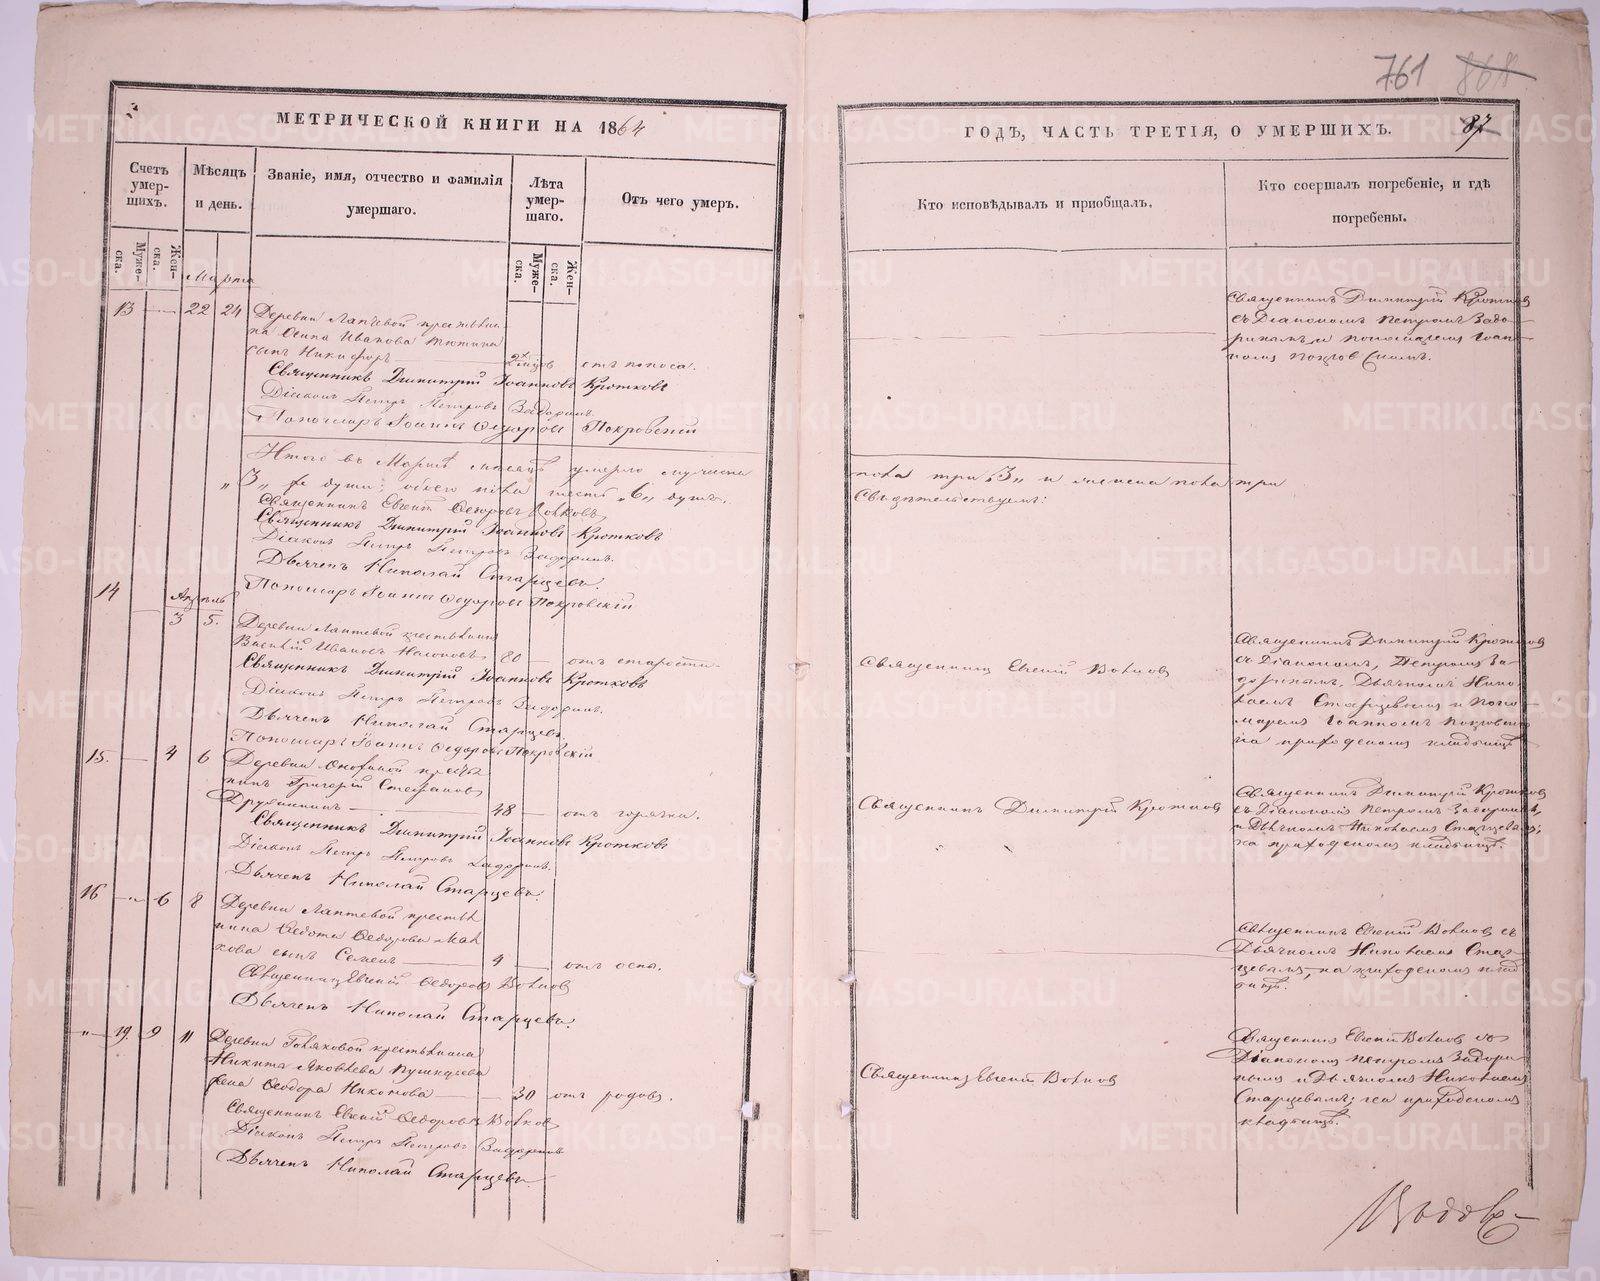 761 868
МЕТРИЧЕСКОЙ КНИГИ НА 1864
ГОДЪ, ЧАСТЬ ТРЕТІЯ, О УМЕРШИХЪ.
87
Счетъ умер-
шихъ.
Мѣсяцъ
и день.
Званіе, имя, отчество и фамилія
умершаго.
Лѣта
умер-
шаго.
Отъ чего умеръ.
Кто исповѣдывалъ и пріобщалъ.
Кто соершалъ погребеніе, и гдѣ
погребены.
Муже-
ска.
Жен-
ска.
Муже-
ска.
Жен-
ска.
Марта
13 22 24 Деревни Лаптевой крестьяни-
на Осипа Иванова
сынъ Никифоръ отъ поноса.
Священникъ Димитрій Іоанновъ Кротковъ
Діаконъ Петръ Петровъ Задоринъ.
Пономарь Іоаннъ Ѳедоровъ Покровскій
Священникъ Димитрій Кротковъ
съ Діакономъ Петромъ Задо-
ринымъ и пономаремъ Іоан-
номъ Покровскимъ.
Итого въ Мартѣ мѣсяцѣ умерло мужеска
пола три 3 и женска пола три
3 душъ; обоего пола шесть 6 душъ.
Свидѣтельствуемъ:
Священникъ Евгеній Ѳедоровъ Волковъ
Священникъ Димитрій Іоанновъ Кротковъ
Діаконъ Петръ Петровъ Задоринъ.
Дьячекъ Николай Старцевъ.
Пономарь Іоаннъ Ѳедоровъ Покровскій
Апрѣль
14 3 5. Деревни Лаптевой крестьянинъ
Василій Ивановъ 80 отъ старости
Священникъ Димитрій Іоанновъ Кротковъ
Діаконъ Петръ Петровъ Задоринъ.
Дьячекъ Николай Старцевъ.
Пономарь Іоаннъ Ѳедоровъ Покровскій
Священникъ Евгеній Волковъ
Священникъ Димитрій Кротковъ
съ Діакономъ, Петромъ За-
доринымъ, Дьячкомъ Нико-
лаемъ Старцевымъ и поно-
маремъ Іоанномъ Покровскимъ
на приходскомъ кладбищѣ
15. 4 6 Деревни крестья-
нинъ Григорій Стефановъ
Дружининъ 48 отъ горячки.
Священникъ Димитрій Іоанновъ Кротковъ
Діаконъ Петръ Петровъ Задоринъ.
Дьячекъ Николай Старцевъ.
Священникъ Димитрій Кротковъ
Священникъ Димитрій Кротковъ
съ Діакономъ Петромъ Задоринымъ,
и Дьячкомъ Николаемъ Старцевымъ;
на приходскомъ кладбищѣ.
16 6 8 Деревни Лаптевой крестья-
нина Ѳедота Ѳедорова
сынъ Семенъ 4 отъ оспы.
Священникъ Евгеній Ѳедоровъ Волковъ
Дьячекъ Николай Старцевъ.
Священникъ Евгеній Волковъ съ
Дьячкомъ Николаемъ Стар-
цевымъ, на приходскомъ клад-
бищѣ.
19. 9 11 Деревни крестьянина
Никиты Яковлева
жена Ѳеодора Никонова 30 отъ родовъ.
Священникъ Евгеній Ѳедоровъ Волковъ
Діаконъ Петръ Петровъ Задоринъ
Дьячекъ Николай Старцевъ
Священникъ Евгеній Волковъ
Священникъ Евгеній Волковъ съ
Діакономъ Петромъ Задори-
нымъ и Дьячкомъ Николаемъ
Старцевымъ; на приходскомъ
кладбищѣ.
METRIKI.GASO-URAL.RU